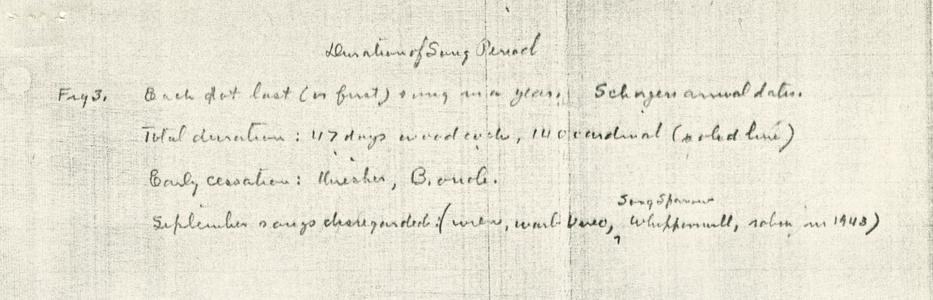 Duration of Song Period
Fig 3. Each dot last (or first) song in a year. Schorgers arrival dates.
Total duration: 47 days woodcock, 140 cardinal (solid line)
Early cessation: thrasher, B. oriole.
Song Sparrow
September songs disregarded: (wren, warb vireo, Whippoorwill, robin in 1948)